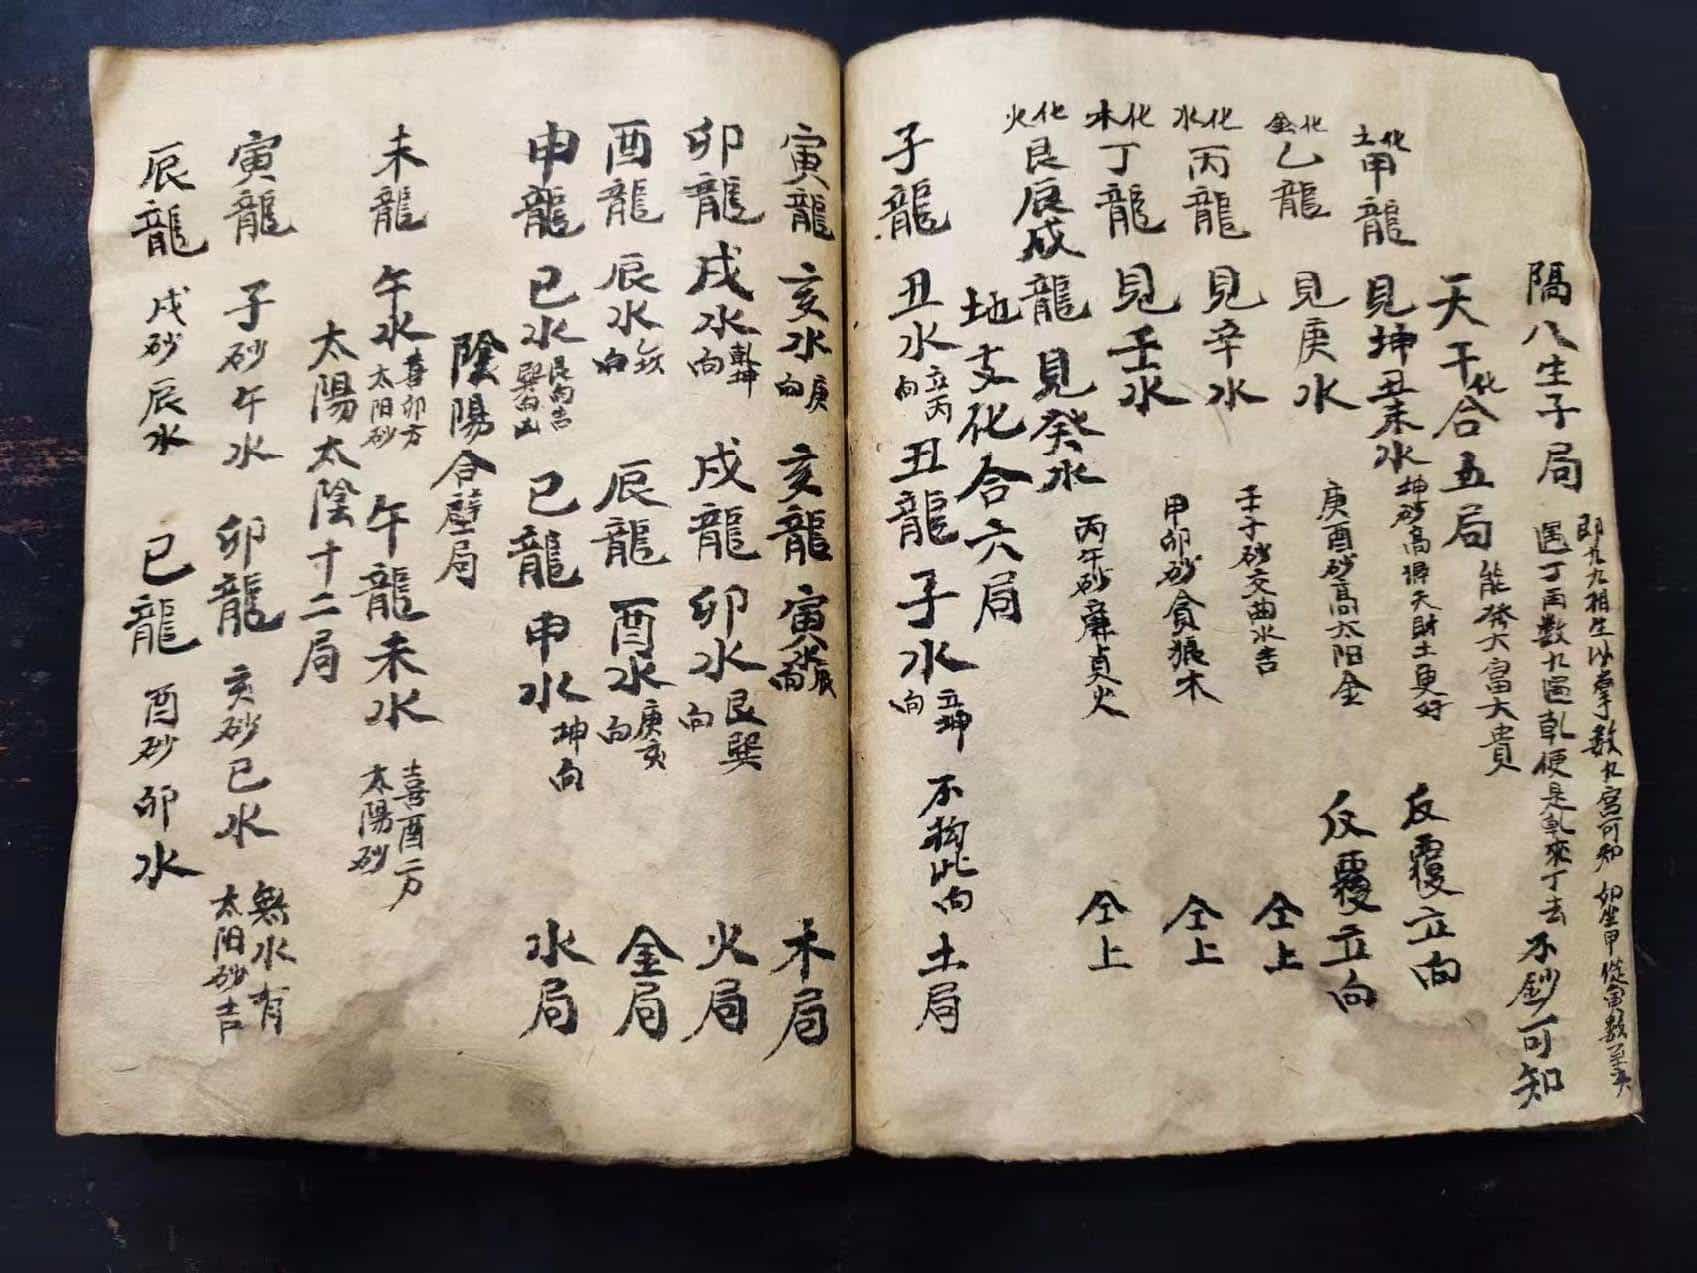 即九九相生以掌數九宮可知 如坐甲從甲數至
隔八生子局 遇丁再數九遇乾便是乾來丁去 不鈔可知
天干化合五局 能發大富大貴
化土 甲龍 見坤丑未水 坤砂高得天財土更好 反覆立向
化金 乙龍 見庚水 庚酉砂高太阳金 反覆立向
化水 丙龍 見辛水 壬子砂文曲水吉 仝上
化木 丁龍 見壬水 甲卯砂貪狼木 仝上
化火 艮辰戌龍 見癸水 丙午砂廉貞火 仝上
地支化合六局
子龍 丑水 立丙向 丑龍 子水 立坤向 不拘此向 土局
寅龍 亥水 庚向 亥龍 寅水 辰向 木局
卯龍 戌水 乾坤向 戌龍 卯水 艮巽向 火局
酉龍 辰水 乙坎向 辰龍 酉水 庚亥向 金局
申龍 巳水 艮向吉巽向凶 巳龍 申水 坤向 水局
陰陽合壁局
未龍 午水 喜卯方太阳砂 午龍 未水 喜酉二方太陽砂
太陽太陰十二局
寅龍 子砂午水 卯龍 亥砂巳水 無水有太阳砂吉
辰龍 戌砂辰水 巳龍 酉砂卯水